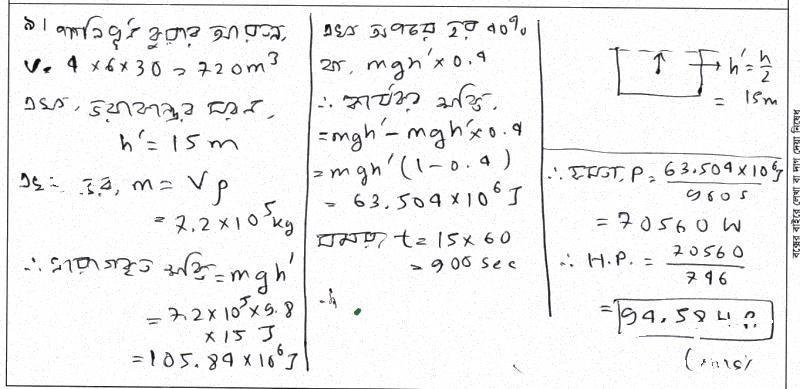 ৯। পানিপূর্ণ কুয়ার আয়তন,
V = 4 × 6 × 30 = 720 m³
এখন, ভরকেন্দ্রের সরণ,
h' = 15 m
ভর, m = Vρ
= 7.2 × 10⁵ kg
∴ শক্তি = mgh'
= 7.2 × 10⁵ × 9.8
× 15 J
= 105.84 × 10⁶ J
এখন অপচয় হয় 40%
বা, mgh' × 0.4
∴ কার্যকর শক্তি,
= mgh' - mgh' × 0.4
= mgh' (1 - 0.4)
= 63.504 × 10⁶ J
সময়, t = 15 × 60
= 900 sec
h' = h/2
= 15 m
∴ ক্ষমতা, P = 63.504 × 10⁶ J / 900 s
= 70560 W
∴ H.P. = 70560 / 746
= 94.58 H.P.
(Ans)
বক্সের বাইরে লেখা বা দাগ দেয়া নিষেধ